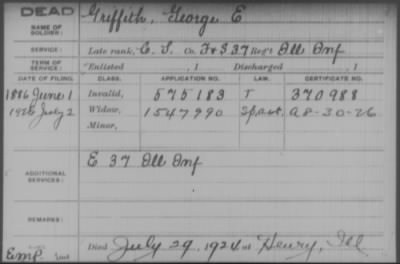 DEAD
NAME OF SOLDIER: Griffith, George E
SERVICE: Late rank, C. S. Co. F & S 37 Reg't Ill Inf
TERM OF SERVICE: Enlisted , 1 Discharged , 1
DATE OF FILING. CLASS. APPLICATION NO. LAW. CERTIFICATE NO.
1886 June 1 Invalid, 575183 370988
July 2 Widow, 1547990 A 8-30-26
Minor,
ADDITIONAL SERVICES: E 37 Ill Inf
REMARKS:
Died July 29, 1924 at Henry, Ill